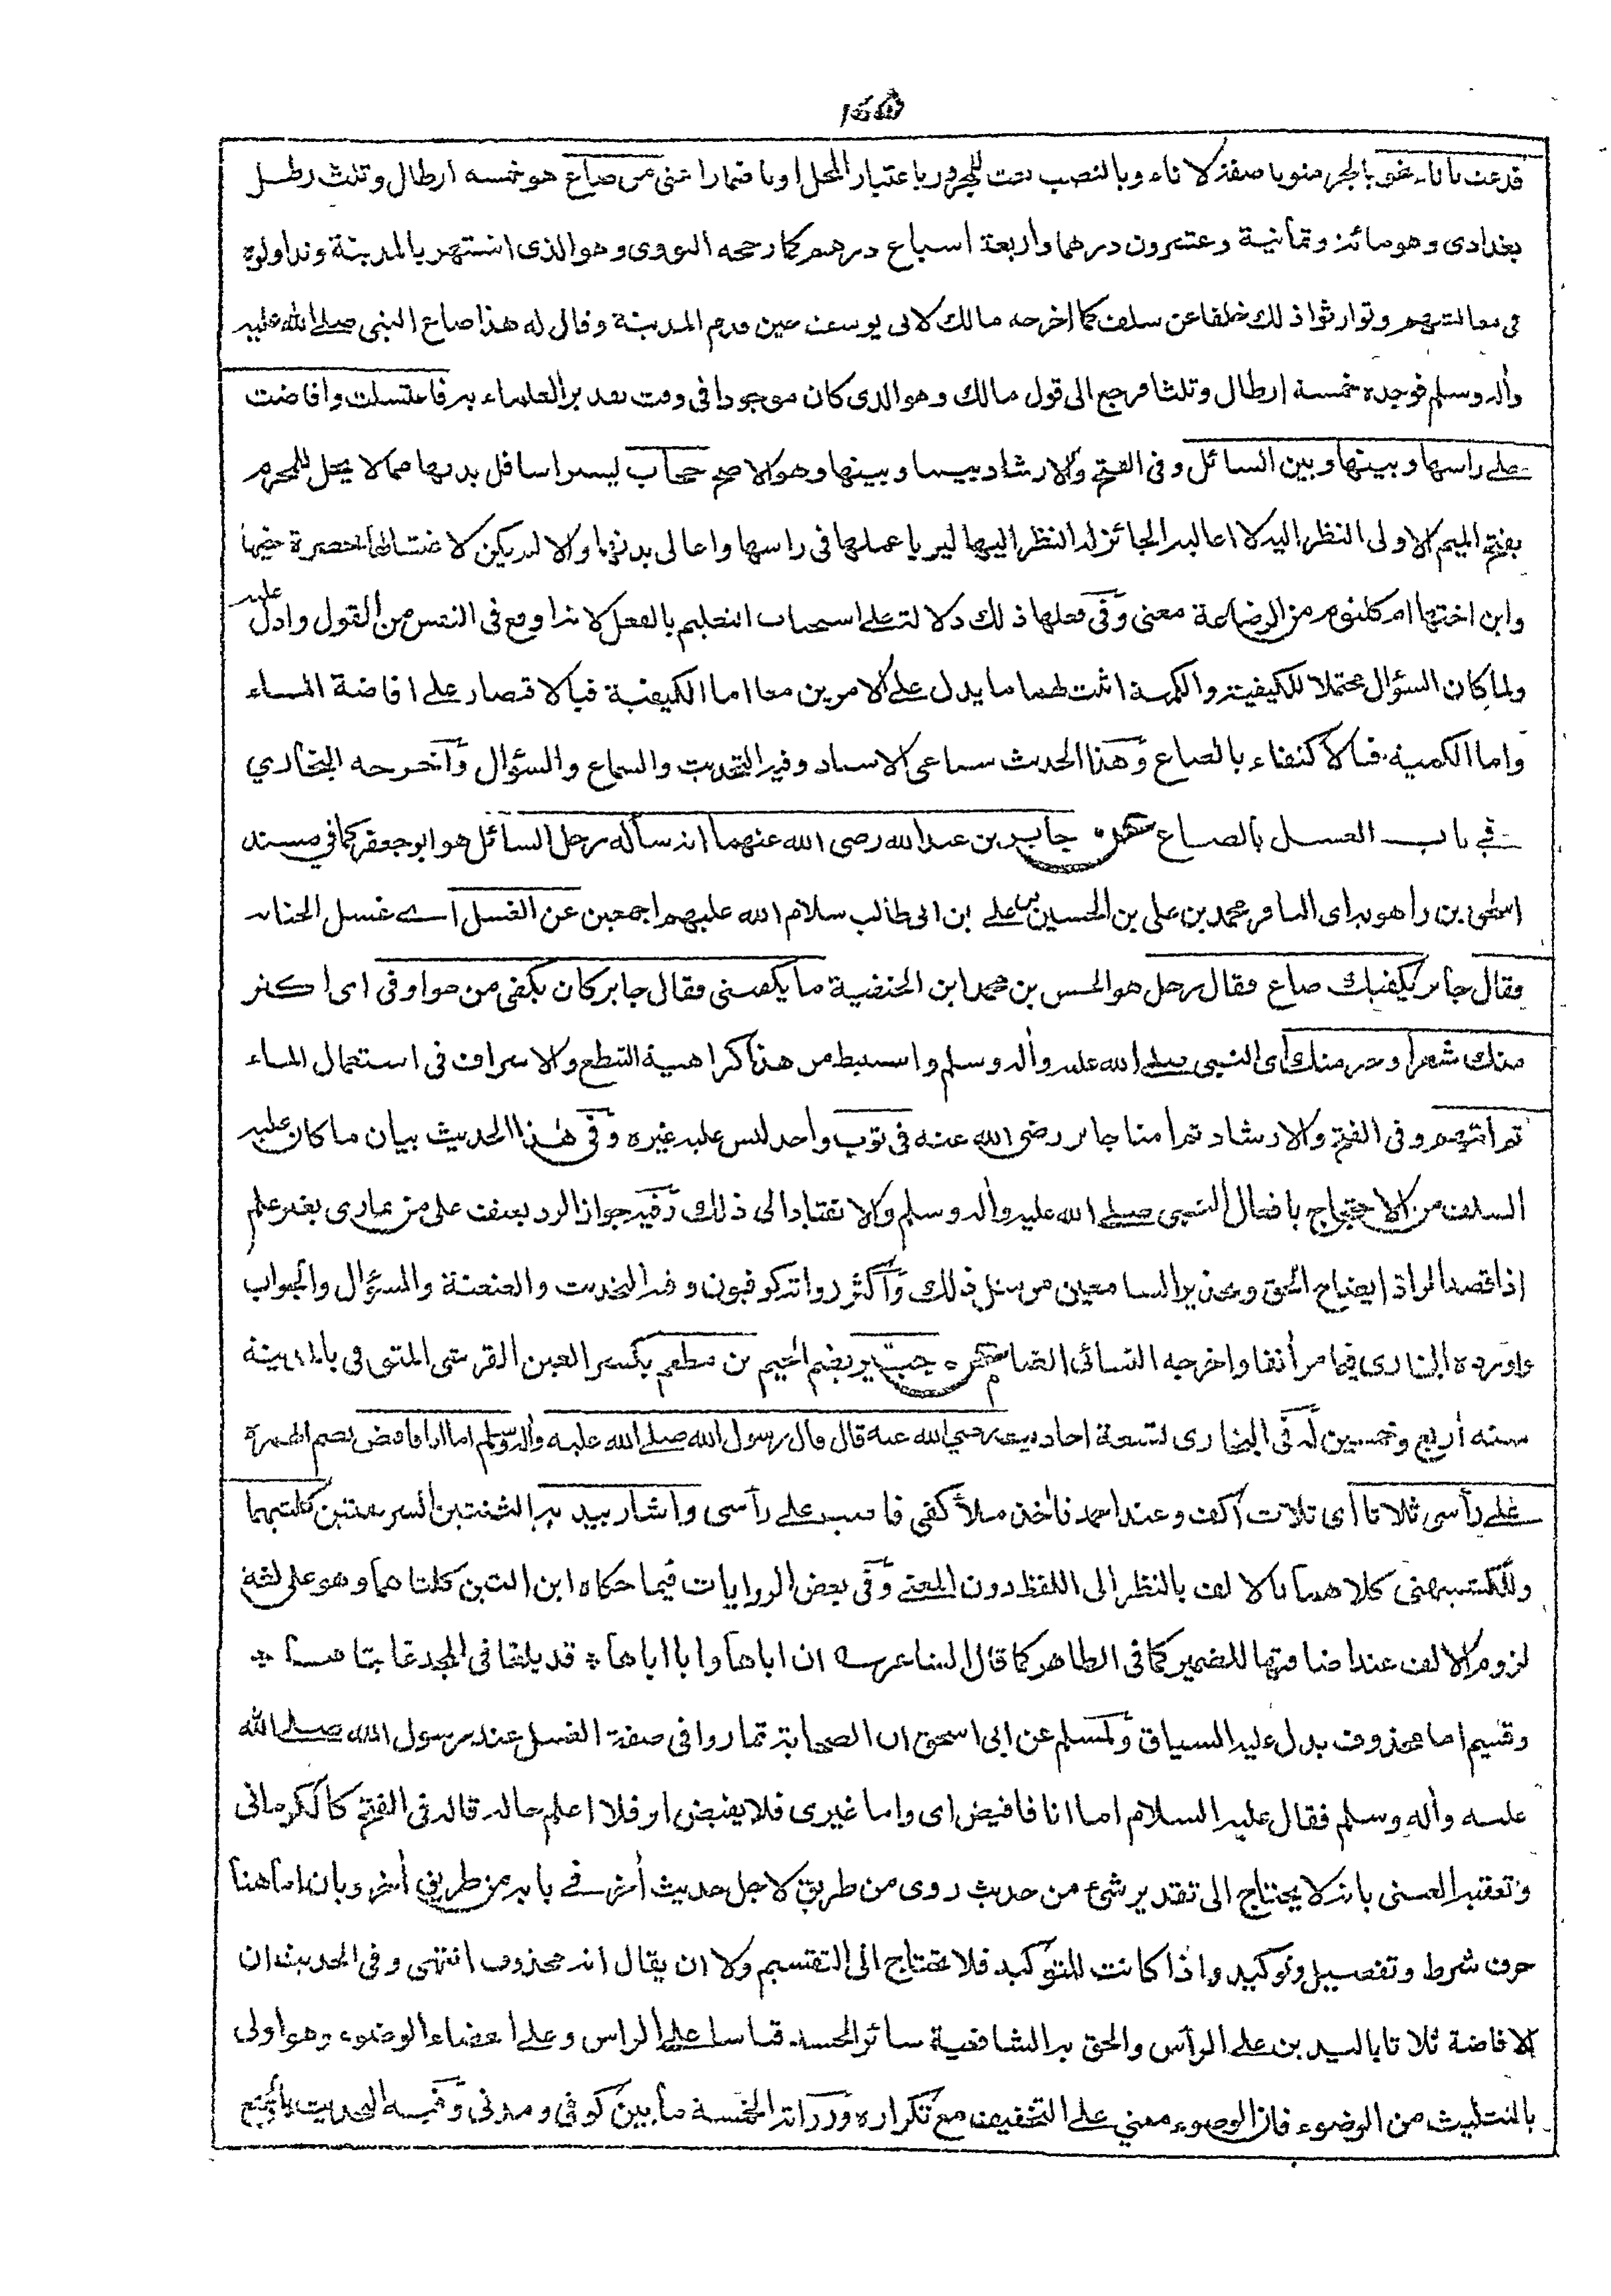 فدعت باناء نحو بالجر منونا صفة لاناء وبالنصب نعت للمجرور باعتبار المحل او باضمار اعنى من صاع هو خمسه ارطال وثلث رطل
بغدادى وهو مائة وثمانية وعشرون درهما واربعة اسباع درهم كما رجحه النووى وهو الذى اشتهر بالمدينة وتداولوه
فى معاشهم وتوارثوا ذلك خلفا عن سلف كما اخرجه مالك لابى يوسف حين قدم المدينة وقال له هذا صاع النبى صلى الله عليه
وأله وسلم فوجده خمسة ارطال وثلثا فرجع الى قول مالك وهو الذى كان موجودا فى وقت تقدير العلماء به فاغتسلت وافاضت
على راسها وبينها وبين السائل وفى الفتح والارشاد بيننا وبينها وهو الاصح حجاب يستر اسافل بدنها مما لا يحل للمحرم
بفتح الميم الاولى النظر اليه لا اعاليه الجائز له النظر اليها ليريا عملها فى راسها واعالى بدنها والا لم يكن لاغتسالها بحضرة خيها
وابن اختها ام كلثوم من الرضاعة معنى وفى فعلها ذلك دلالة على استحباب التعليم بالفعل لانه اوقع فى النفس من القول وادل عليه
ولما كان السؤال محتملا للكيفية والكمية اثبت لهما ما يدل على الامرين معا اما الكيفية فبالاقتصار على افاضة الماء
واما الكمية فبالاكتفاء بالصاع وهذا الحديث سباعى الاسناد وفيه التحديث والسماع والسؤال وأخرجه البخاري
في باب الغسل بالصاع عن جابر بن عبد الله رضى الله عنهما انه سأله رجل السائل هو ابو جعفر كما في مسند
اسحق بن راهويه اى الباقر محمد بن على بن الحسين بن على بن ابى طالب سلام الله عليهم اجمعين عن الغسل اے غسل الجنابة
فقال جابر يكفيك صاع فقال رجل هو الحسن بن محمد ابن الحنفية ما يكفينى فقال جابر كان يكفى من هو اوفى اى اكثر
منك شعرا وخير منك اى النبى صلى الله عليه وأله وسلم واستنبط من هذا كراهية التنطع والاسراف فى استعمال الماء
ثم امّهم وفى الفتح والارشاد ثم امنا جابر رضى الله عنه فى ثوب واحد ليس عليه غيره وفى هذا الحديث بيان ما كان عليه
السلف من الاحتجاج بافعال النبى صلى الله عليه وأله وسلم والانقياد الى ذلك وفيه جواز الرد بعنف على من يمارى بغير علم
اذا قصد الراد ايضاح الحق وتحذير السامعين من مثل ذلك وأكثر رواته كوفيون وفيه التحديث والعنعنة والسؤال والجواب
واورده البخارى فيما مر أنفا واخرجه النسائى ايضا عن جبير بضم الجيم بن مطعم بكسر العين القرشى المتوفى بالمدينة
سنه أربع وخمسين له فى البخارى تسعة احاديث رضي الله عنه قال قال رسول الله صلى الله عليه وأله وسلم اما انا فافيض بضم الهمزة
على رأسى ثلاثا اى ثلاث أكف وعند احمد فأخذ ملأ كفي فاصب على رأسى واشار بيديه الثنتين الشريفتين كلتيهما
وللكشميهنى كلاهما بالالف بالنظر الى اللفظ دون المعنى وفى بعض الروايات فيما حكاه ابن التين كلتاهما وهو على لغة
لزوم الالف عند اضافتها للضمير كما فى الظاهر كما قال الشاعر ان اباها وابا اباها * قد بلغا فى المجد غايتاها *
وقسيم اما محذوف يدل عليه السياق ولمسلم عن ابى اسحق ان الصحابة تماروا فى صفة الغسل عند رسول الله صلى الله
عليه وأله وسلم فقال عليه السلام اما انا فافيض اى واما غيرى فلا يفيض او فلا اعلم حاله قاله فى الفتح كالكرمانى
وتعقبه العينى بانه لا يحتاج الى تقدير شئ من حديث روى من طريق لاجل حديث أخر فے بابه من طريق أخر وبان اما هنا
حرف شرط وتفصيل وتوكيد واذا كانت للتوكيد فلا تحتاج الى التقسيم ولا ان يقال انه محذوف انتهى وفى الحديث ان
الافاضة ثلاثا باليدين على الرأس والحق به الشافعية سائر الجسد قياسا على الراس وعلى اعضاء الوضوء وهو اولى
بالتثليث من الوضوء فان الوضوء مبني على التخفيف مع تكراره ورواته الخمسة ما بين كوفى ومدنى وفيه التحديث بالجمع